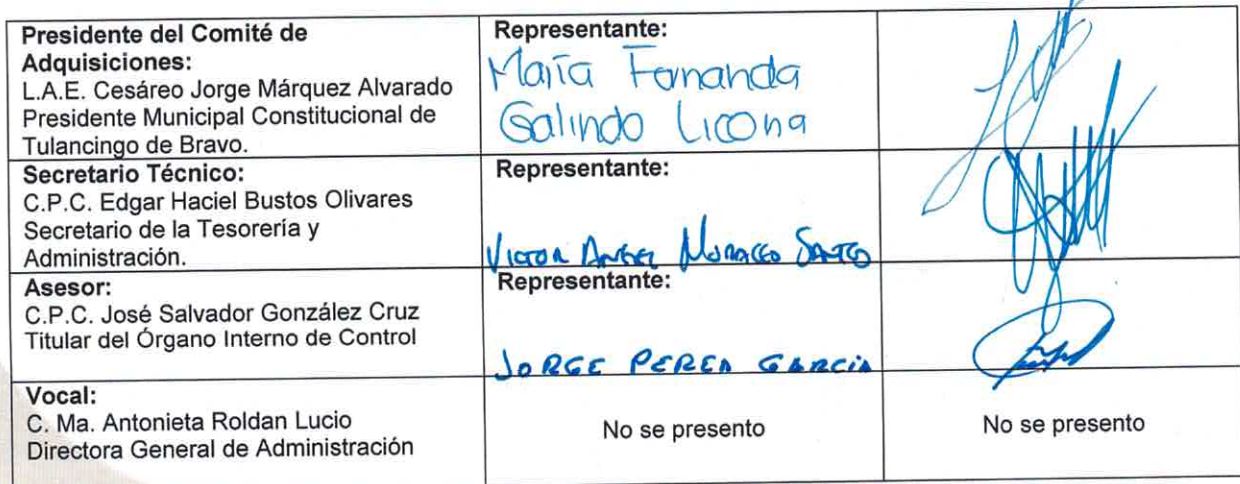 Presidente del Comité de
Adquisiciones:
L.A.E. Cesáreo Jorge Márquez Alvarado
Presidente Municipal Constitucional de
Tulancingo de Bravo.
Representante:
María Fernanda
Galindo Licona
Secretario Técnico:
C.P.C. Edgar Haciel Bustos Olivares
Secretario de la Tesorería y
Administración.
Representante:
Victor Angel
Asesor:
C.P.C. José Salvador González Cruz
Titular del Órgano Interno de Control
Representante:
JORGE PEREA GARCIA
Vocal:
C. Ma. Antonieta Roldan Lucio
Directora General de Administración
No se presento
No se presento